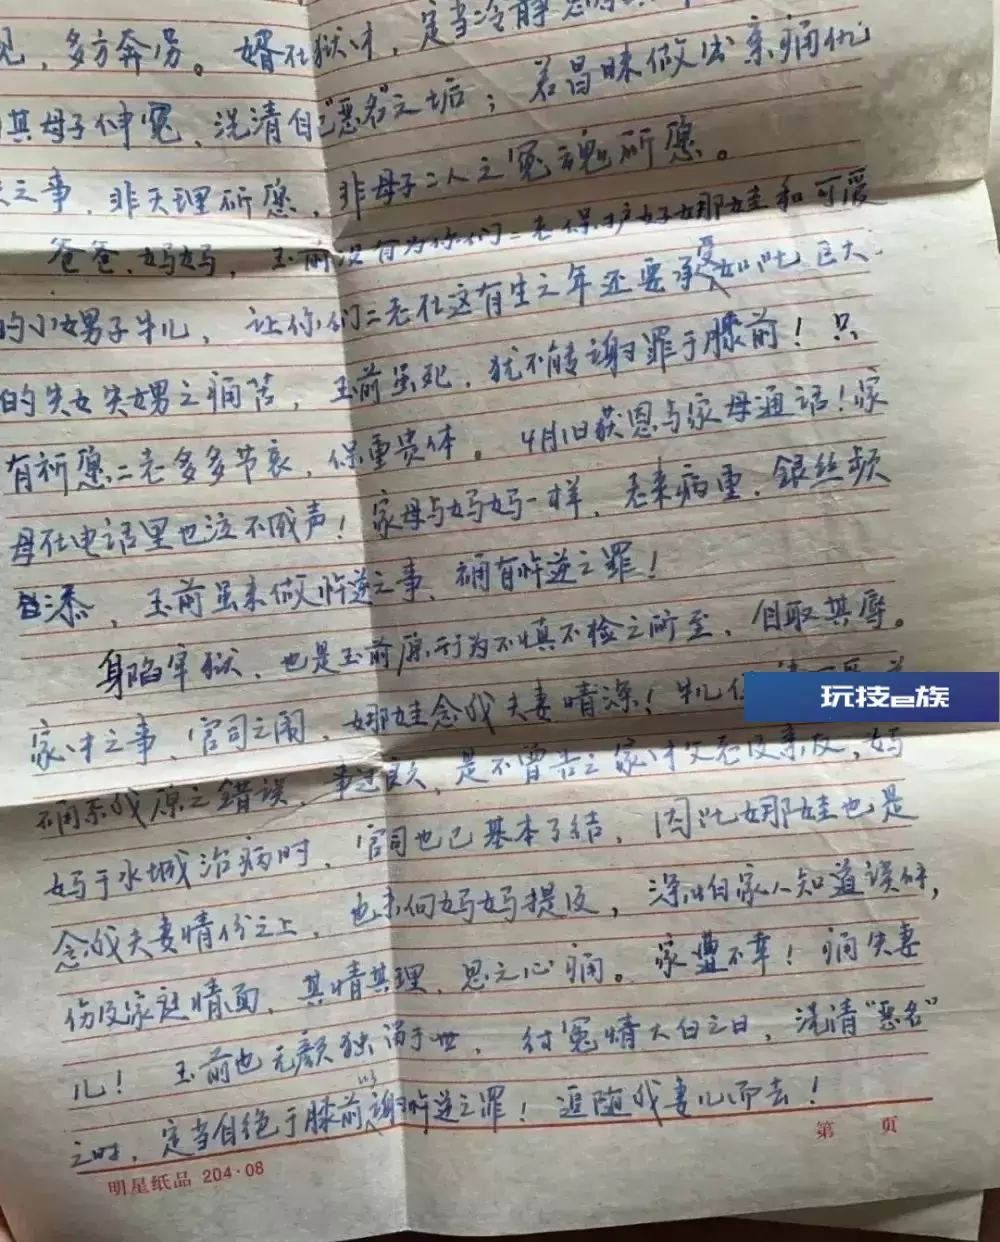 见，多方奔劳。婿在狱中，定当冷静
其母子伸冤，洗清自己"恶名"之垢；若冒昧做出亲痛仇
之事，非天理所愿，非母子二人之冤魂所愿。
爸爸、妈妈，玉前没有为你们二老保护好娜娃和可爱
的小甥子牛儿，让你们二老在这有生之年还要承受如此巨大
的失女失甥之痛苦，玉前虽死，犹不能谢罪于膝前！只
有祈愿二老多多节哀，保重贵体。4月1日获恩与家母通话！家
母在电话里也泣不成声！家母与妈妈一样，老来病重，银丝频
添，玉前虽未做忤逆之事，确有忤逆之罪！
身陷牢狱，也是玉前原行为不慎不检之所至，自取其辱。
家中之事，官司之闹，娜娃念我夫妻情深！牛儿
我原之错误，事过良久，是不曾告之家中父老及亲友，妈
妈于水城治病时，官司也已基本了结，因此娜娃也是
念我夫妻情份之上，也未向妈妈提及，深怕家人知道误解，
伤及家庭情面，其情其理，思之心痛。家遭不幸！痛失妻
儿！玉前也无颜独留于世，待冤情大白之日，洗清"恶名"
之时，定当自绝于膝前以谢忤逆之罪！追随我妻儿而去！
第 页
明星纸品 204·08
玩技e族